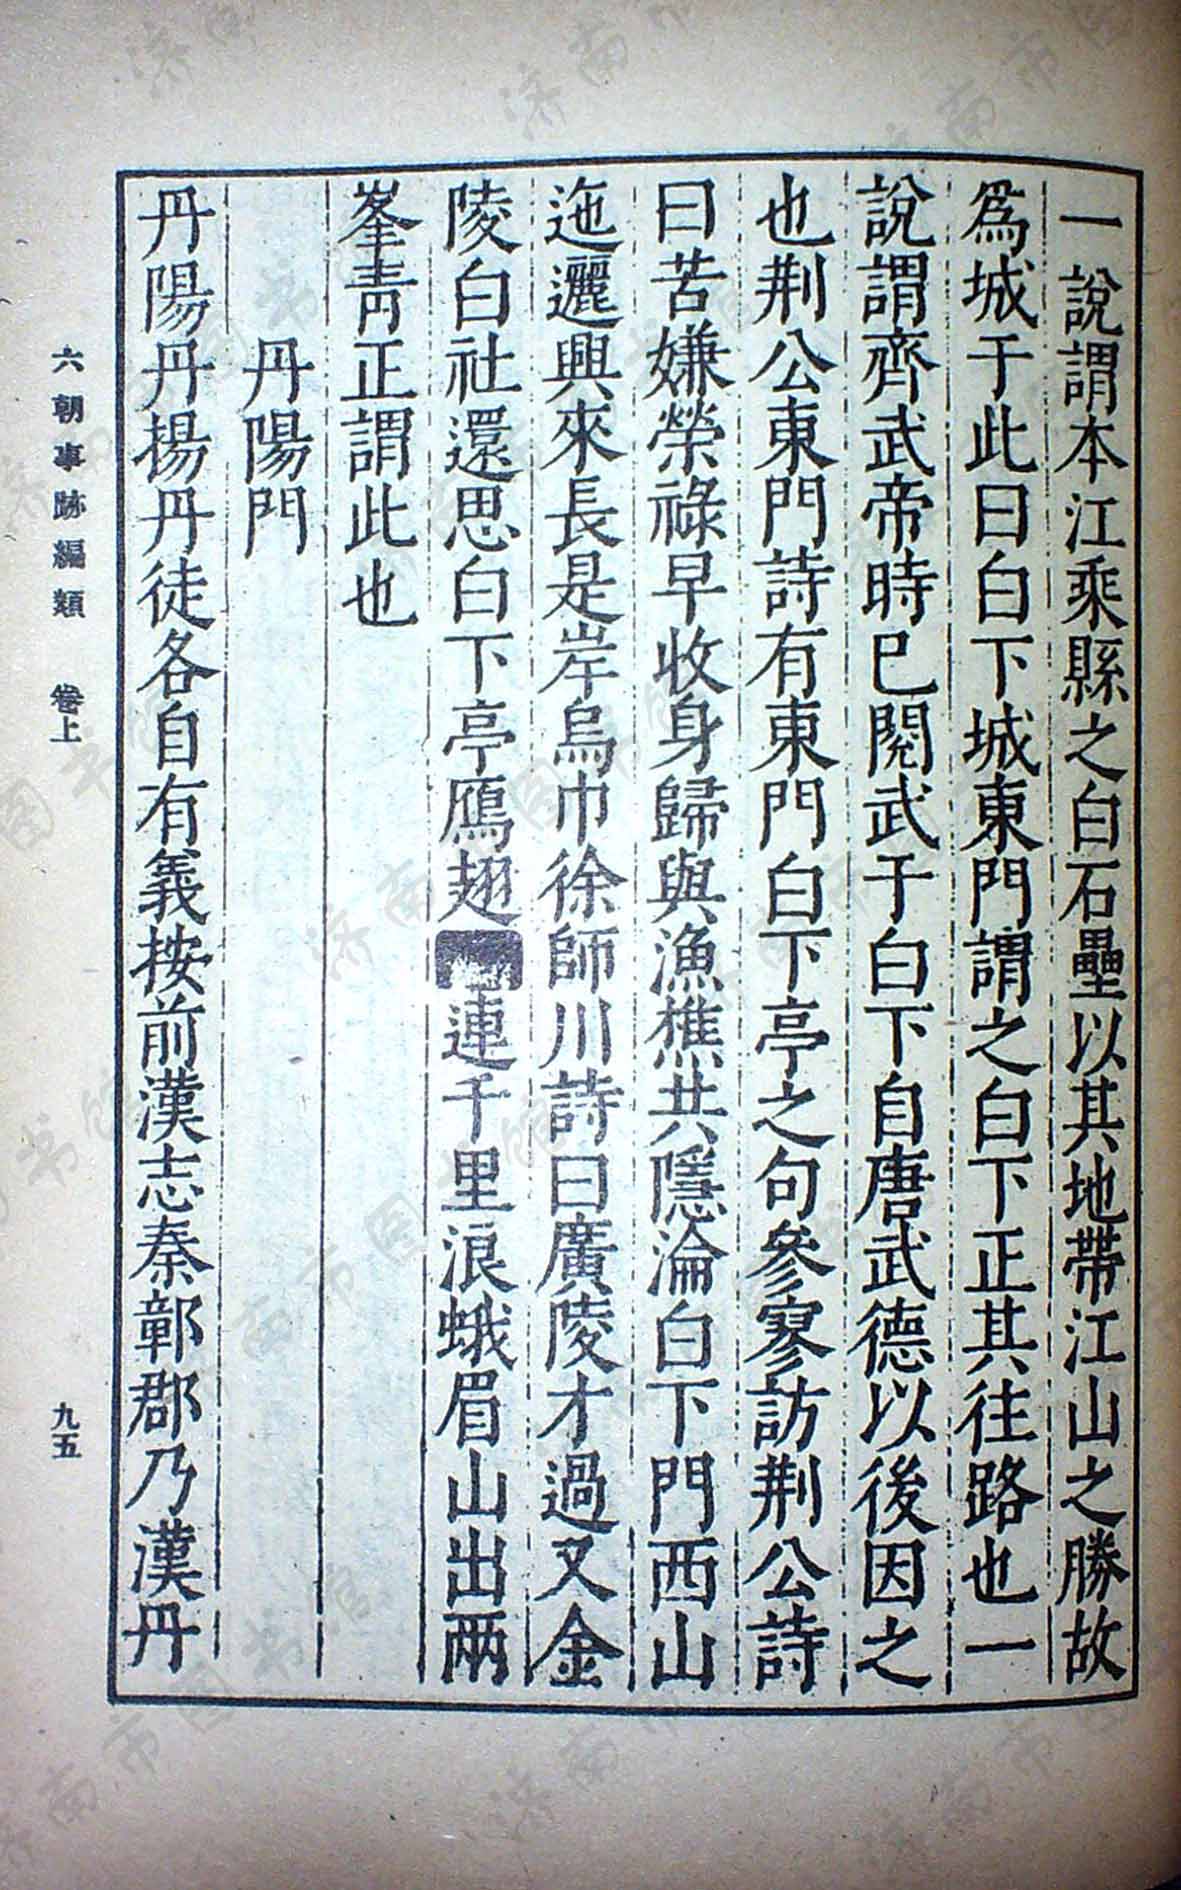 一說謂本江乘縣之白石壘以其地帶江山之勝故
爲城于此曰白下城東門謂之白下正其往路也一
說謂齊武帝時巳閱武于白下自唐武德以後因之
也荆公東門詩有東門白下亭之句參寥訪荆公詩
曰苦嫌榮祿早收身歸與漁樵共隱淪白下門西山
迤邐興來長是岸烏巾徐師川詩曰廣陵才過又金
陵白社還思白下亭鴈翅連千里浪蛾眉山出兩
峯青正謂此也
丹陽門
丹陽丹揚丹徒各自有義按前漢志秦鄣郡乃漢丹
六朝事跡編類 卷上
九五